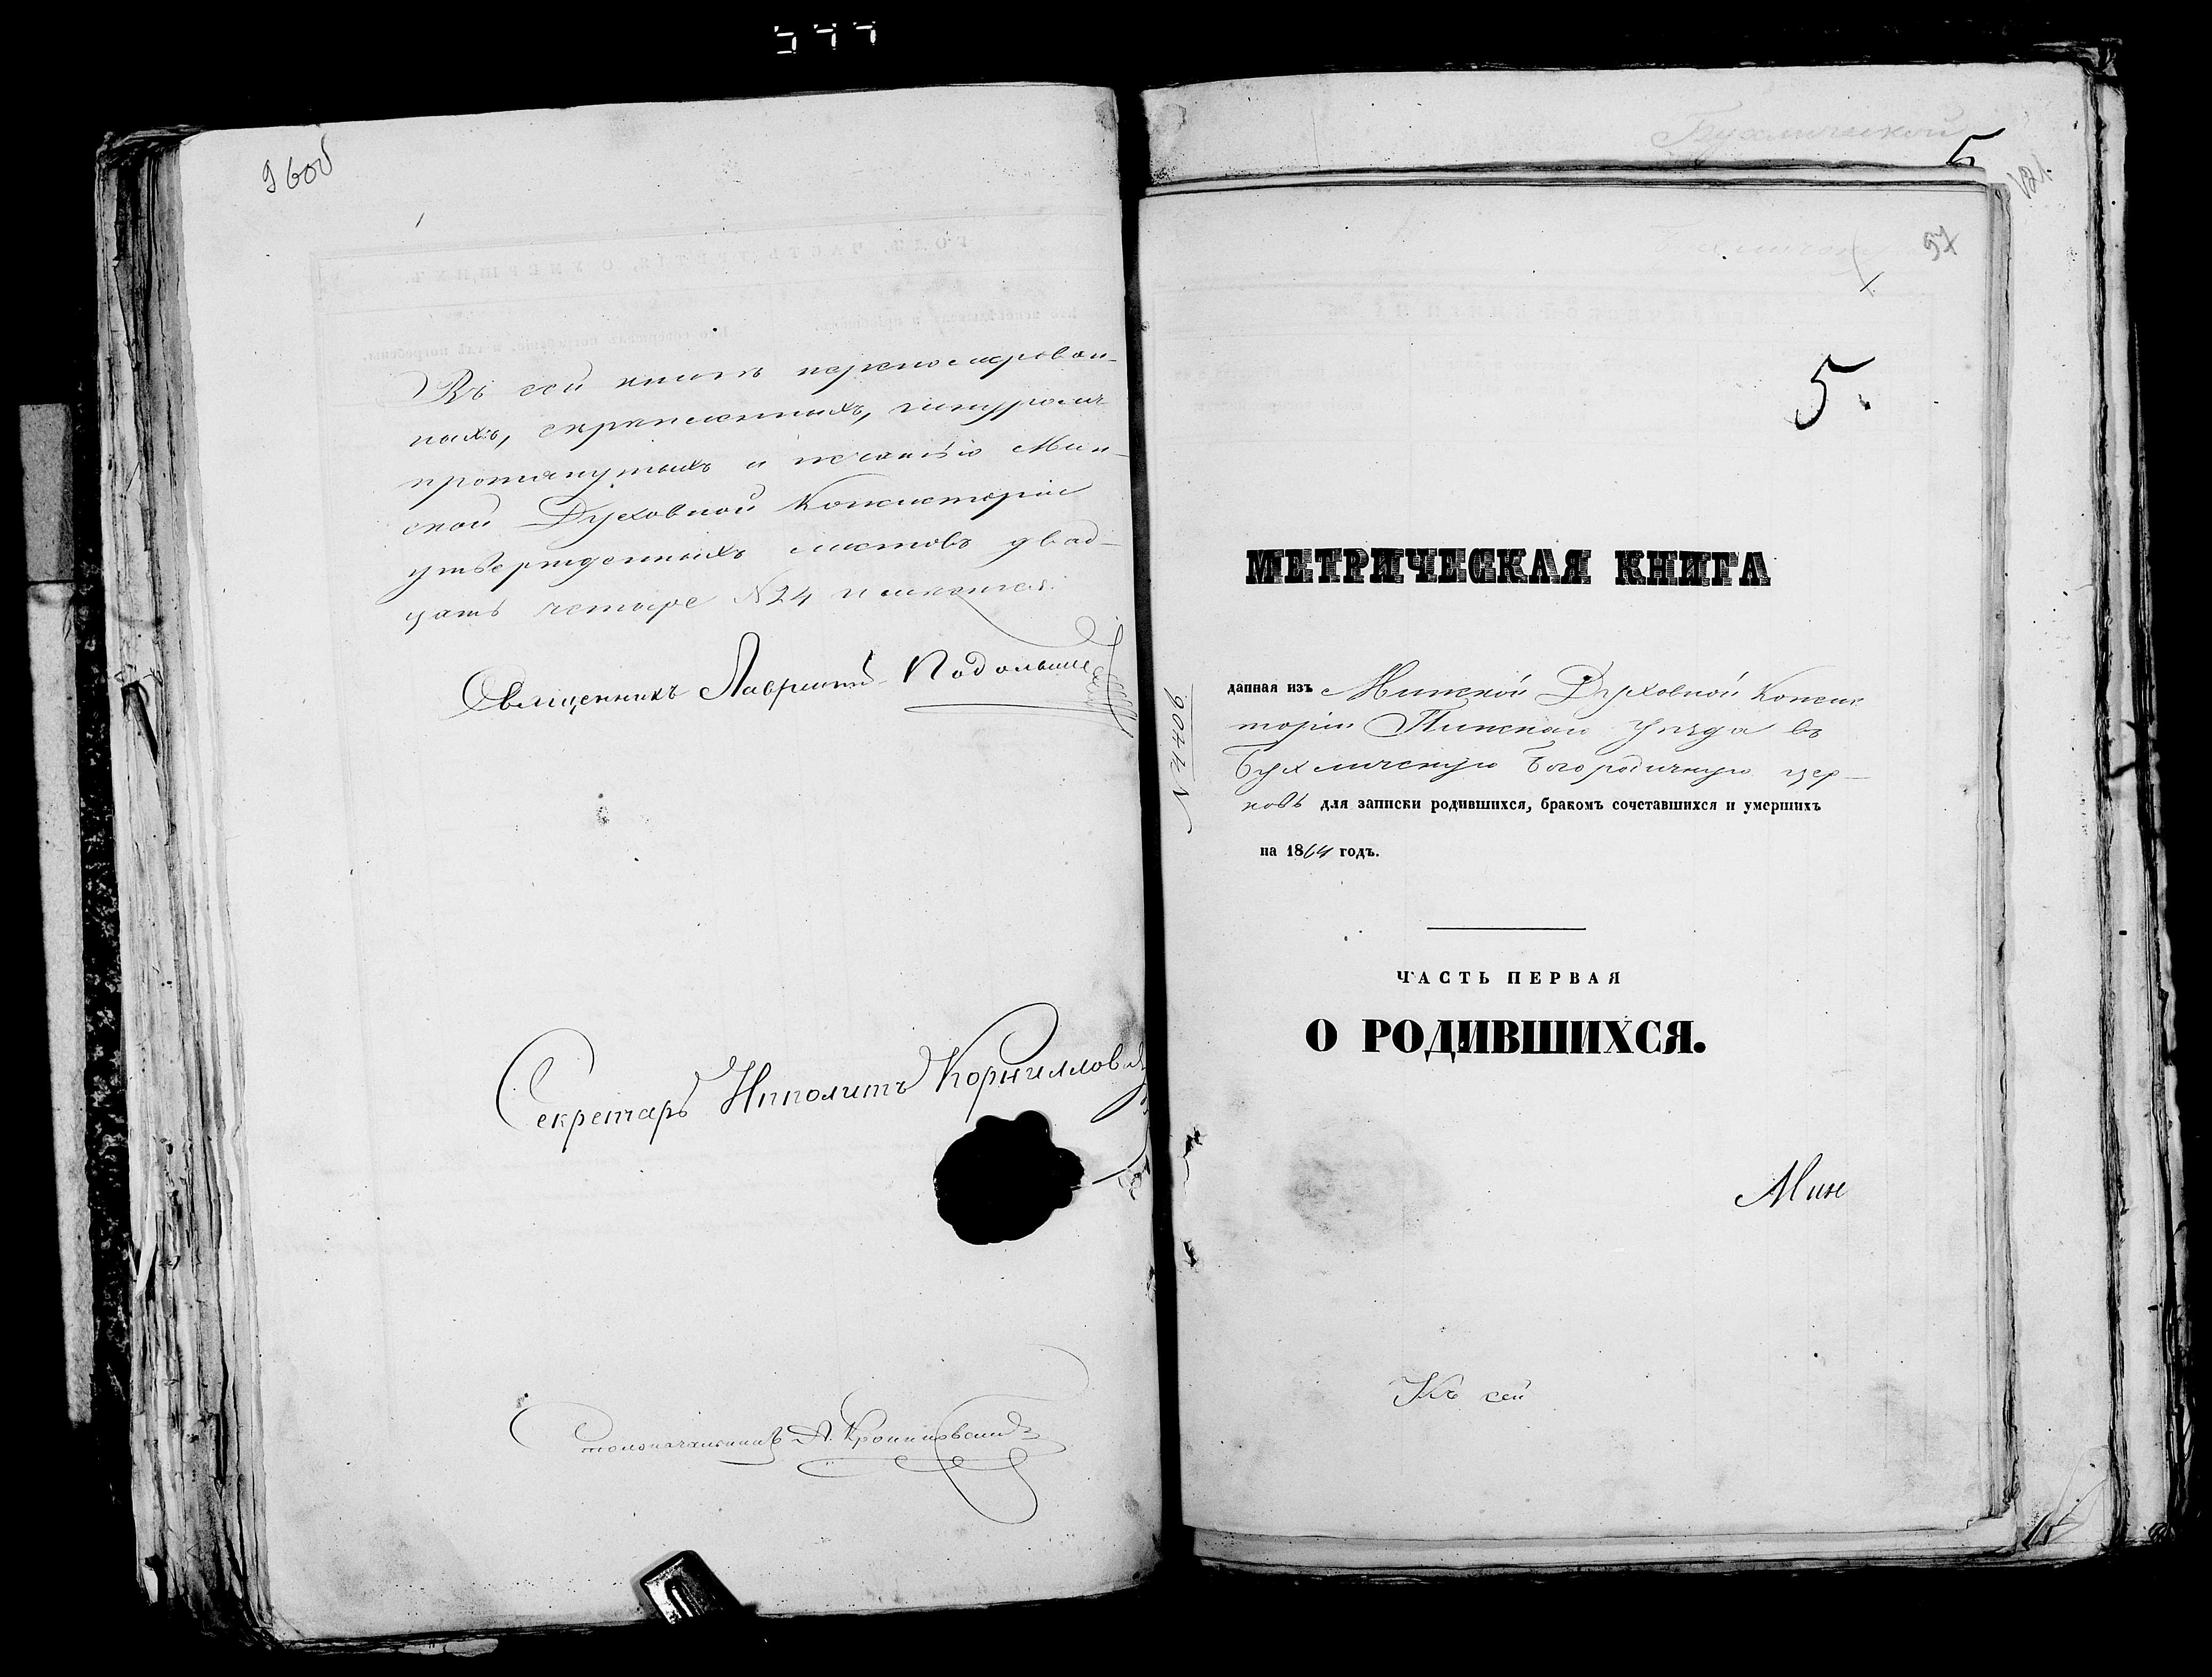 96об
Въ сей книгѣ перенумерован-
ныхъ, скрепленныхъ, шнуромъ
протянутыхъ и печатью Мин-
ской Духовной Консисторіи
утвержденныхъ листовъ двад-
цать четыре №24 имѣется.
Священникъ Лаврентій
Секретарь Ипполитъ
Столоначальникъ А.
Бухличской
5
121
97
5.
МЕТРИЧЕСКАЯ КНИГА
данная изъ Минской Духовной Консис
торіи Пинскаго уѣзда въ
Бухличскую Богородичную цер-
ковь для записки родившихся, бракомъ сочетавшихся и умершихъ
на 1864 годъ.
ЧАСТЬ ПЕРВАЯ
О РОДИВШИХСЯ.
Мин
Къ сей